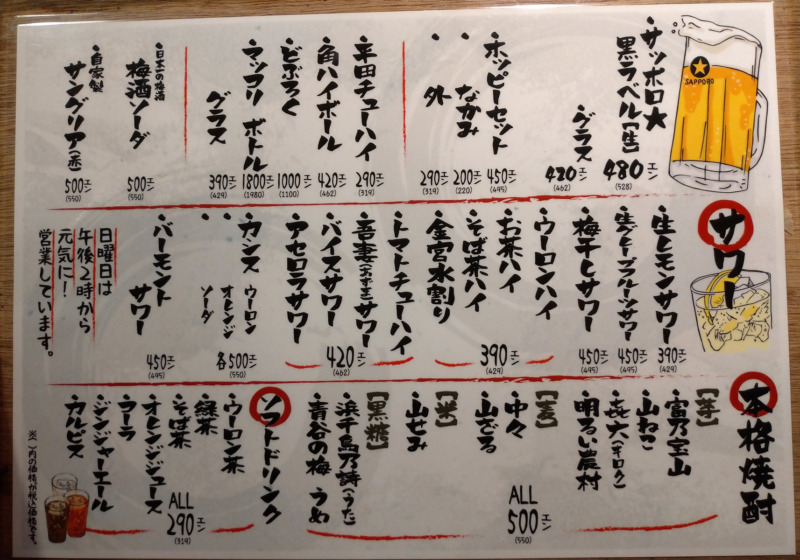 SAPPORO
サッポロ大
黒ラベル【生】 480エン
(528)
グラス 420エン
(462)
ホッピーセット 450エン
(495)
〃 なかみ 200エン
(220)
〃 外 290エン
(319)
平田チューハイ 290エン
(319)
角ハイボール 420エン
(462)
どぶろく 1000エン
(1100)
マッコリ ボトル 1800エン
(1980)
グラス 390エン
(429)
日本一の梅酒
梅酒ソーダ 500エン
(550)
自家製
サングリア(赤) 500エン
(550)
サワー
生レモンサワー 390エン
(429)
生グレープフルーツサワー 450エン
(495)
梅干しサワー 450エン
(495)
ウーロンハイ
お茶ハイ
そば茶ハイ
金宮水割り
390エン
(429)
トマトチューハイ
吾妻(あずま)サワー
バイスサワー
アセロラサワー
420エン
(462)
カシス ウーロン
〃 オレンジ
〃 ソーダ
各500エン
(550)
バーモント
サワー 450エン
(495)
日曜日は
午後2時から
元気に!
営業しています。
本格焼酎
【芋】
富乃宝山
山ねこ
㐂六(キロク)
明るい農村
【麦】
中々
山ざる
【米】
山せみ
【黒糖】
浜千鳥乃詩(うた)
青谷の梅 うめ
ALL
500エン
(550)
ソフトドリンク
ウーロン茶
緑茶
そば茶
オレンジジュース
コーラ
ジンジャーエール
カルピス
ALL
290エン
(319)
※( )内の価格が税込価格です。